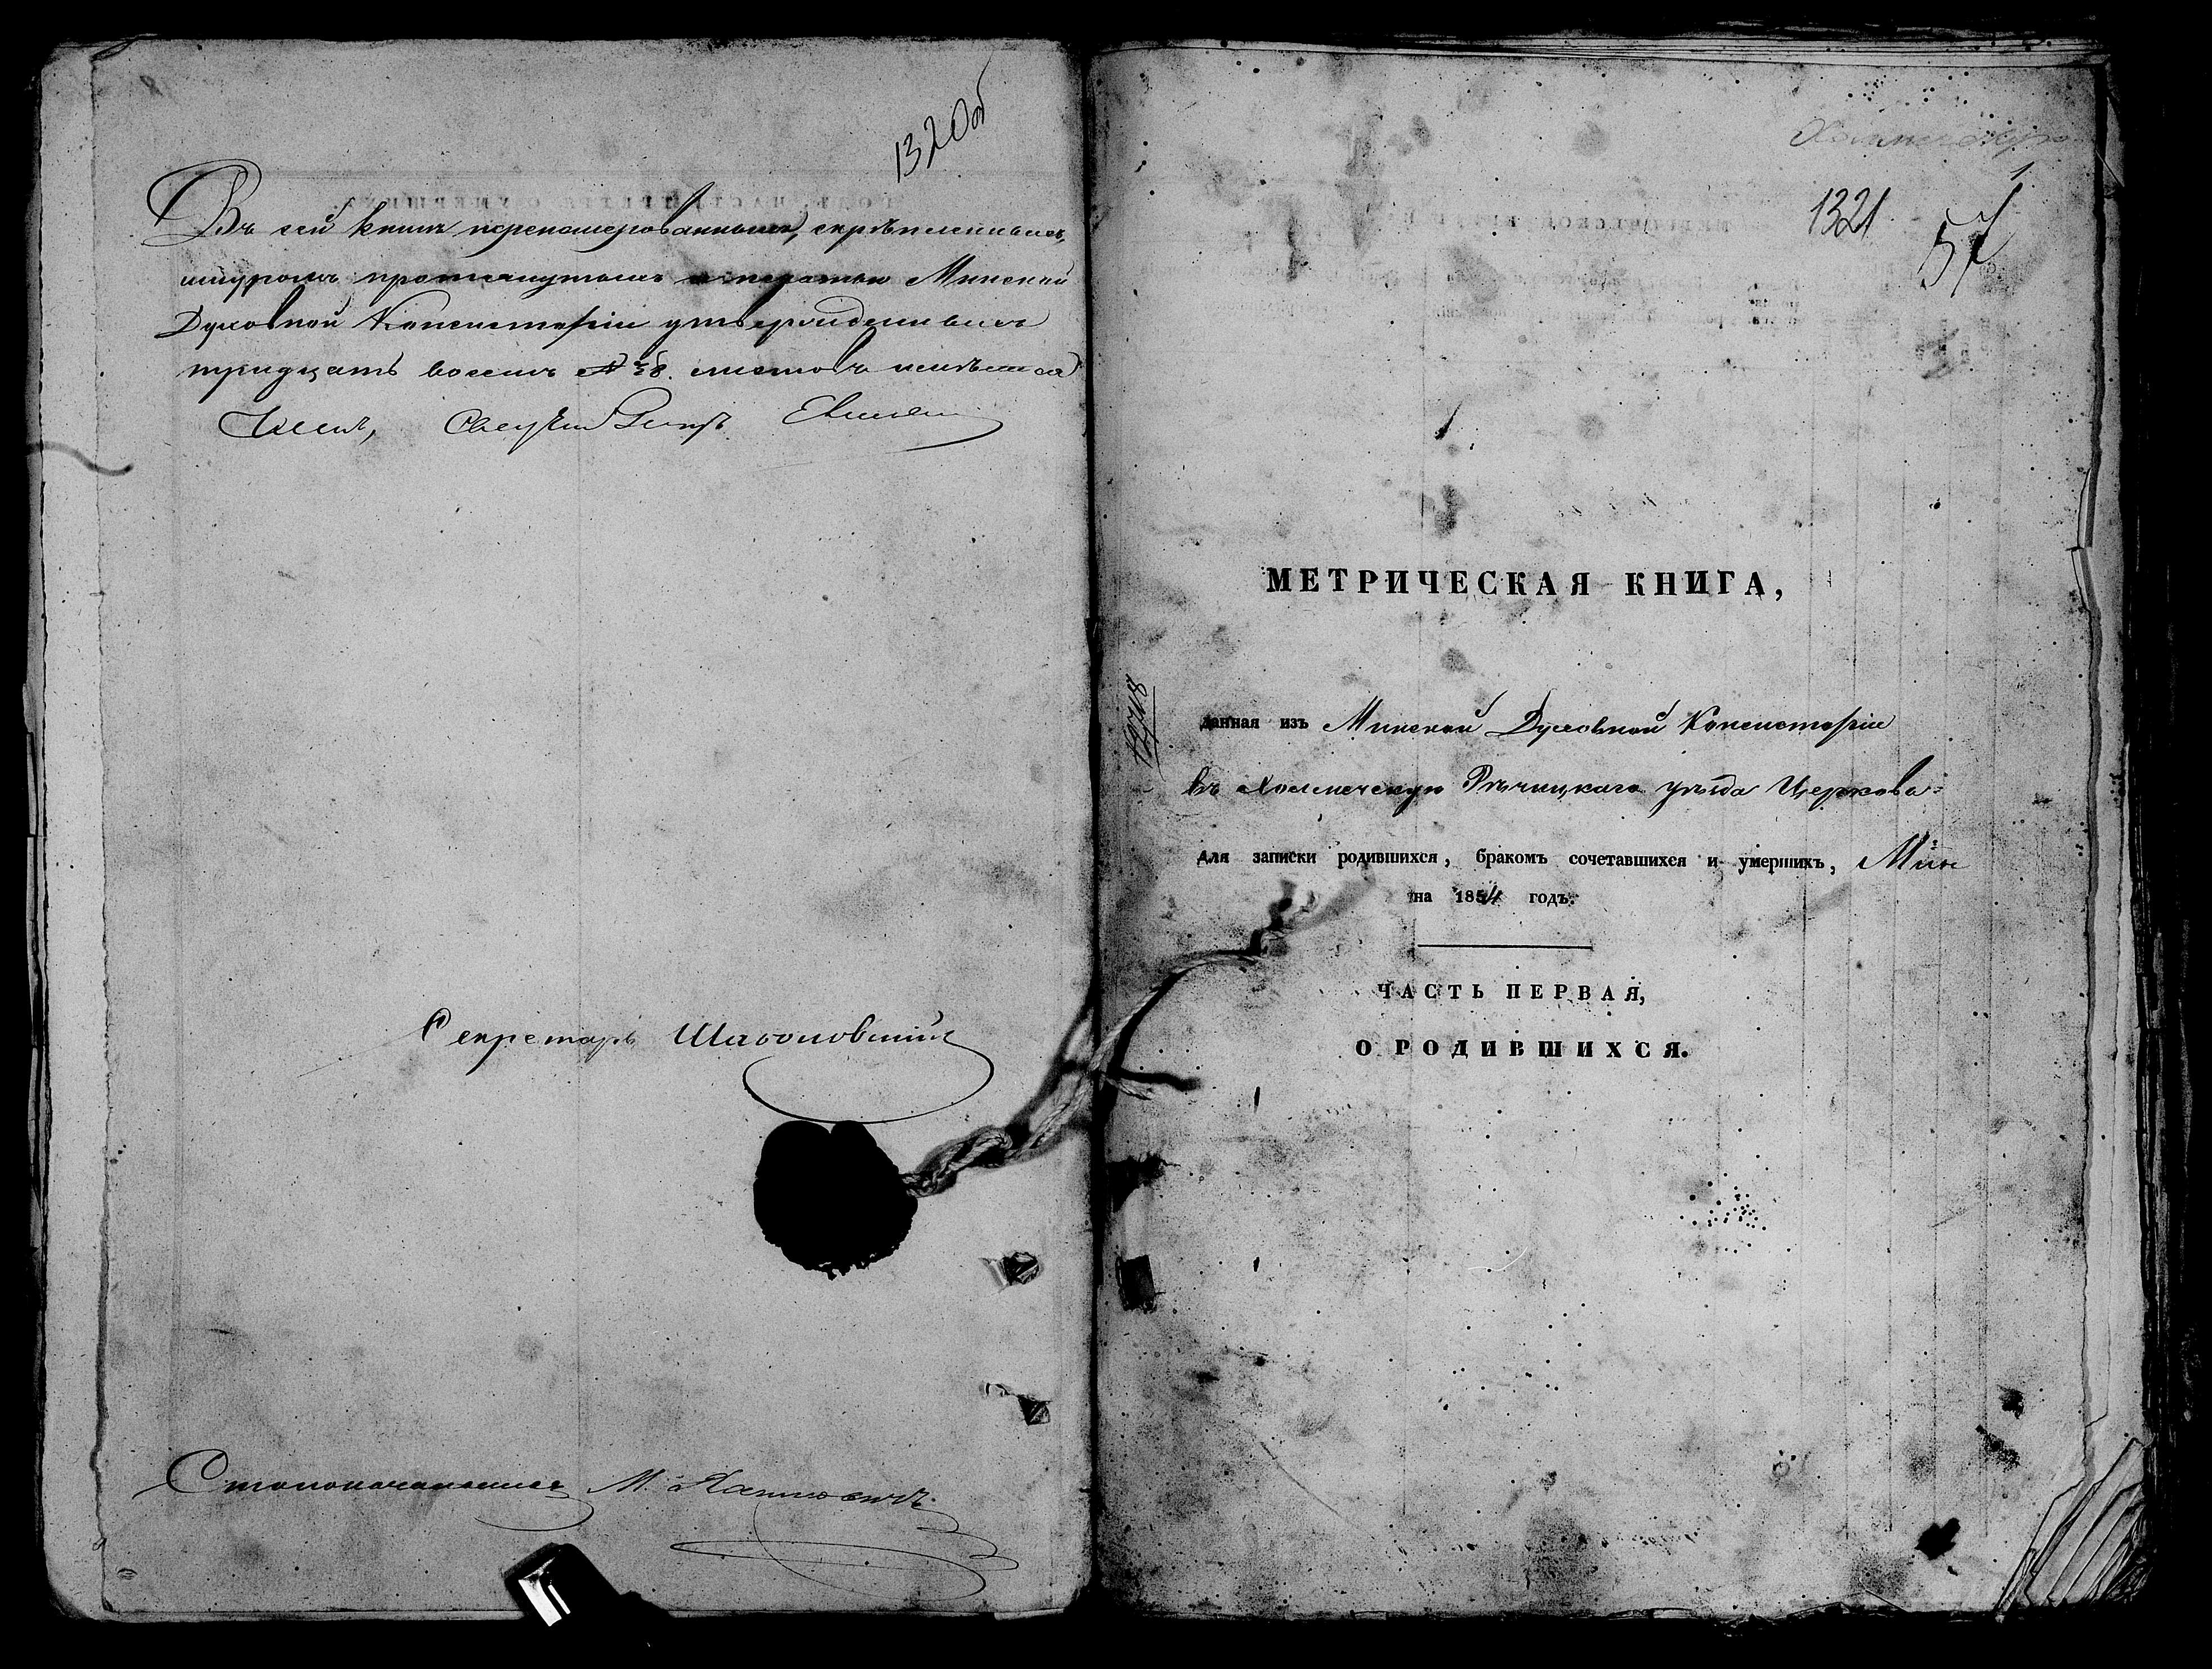 1320об
Въ сей книгѣ перенумерованныхъ, скрѣпленныхъ,
шнуромъ протянутыхъ и печатью Минской
Духовной Консисторіи утвержденныхъ
тридцать восемь № 38. листовъ имѣется
Секретарь
Столоначальникъ М.
1321
57
МЕТРИЧЕСКАЯ КНИГА,
данная изъ Минской Духовной Консисторіи
въ Холмечскую Рѣчицкаго уѣзда Церковь
для записки родившихся, бракомъ сочетавшихся и умершихъ,
на 1854 годъ.
ЧАСТЬ ПЕРВАЯ,
О РОДИВШИХСЯ.